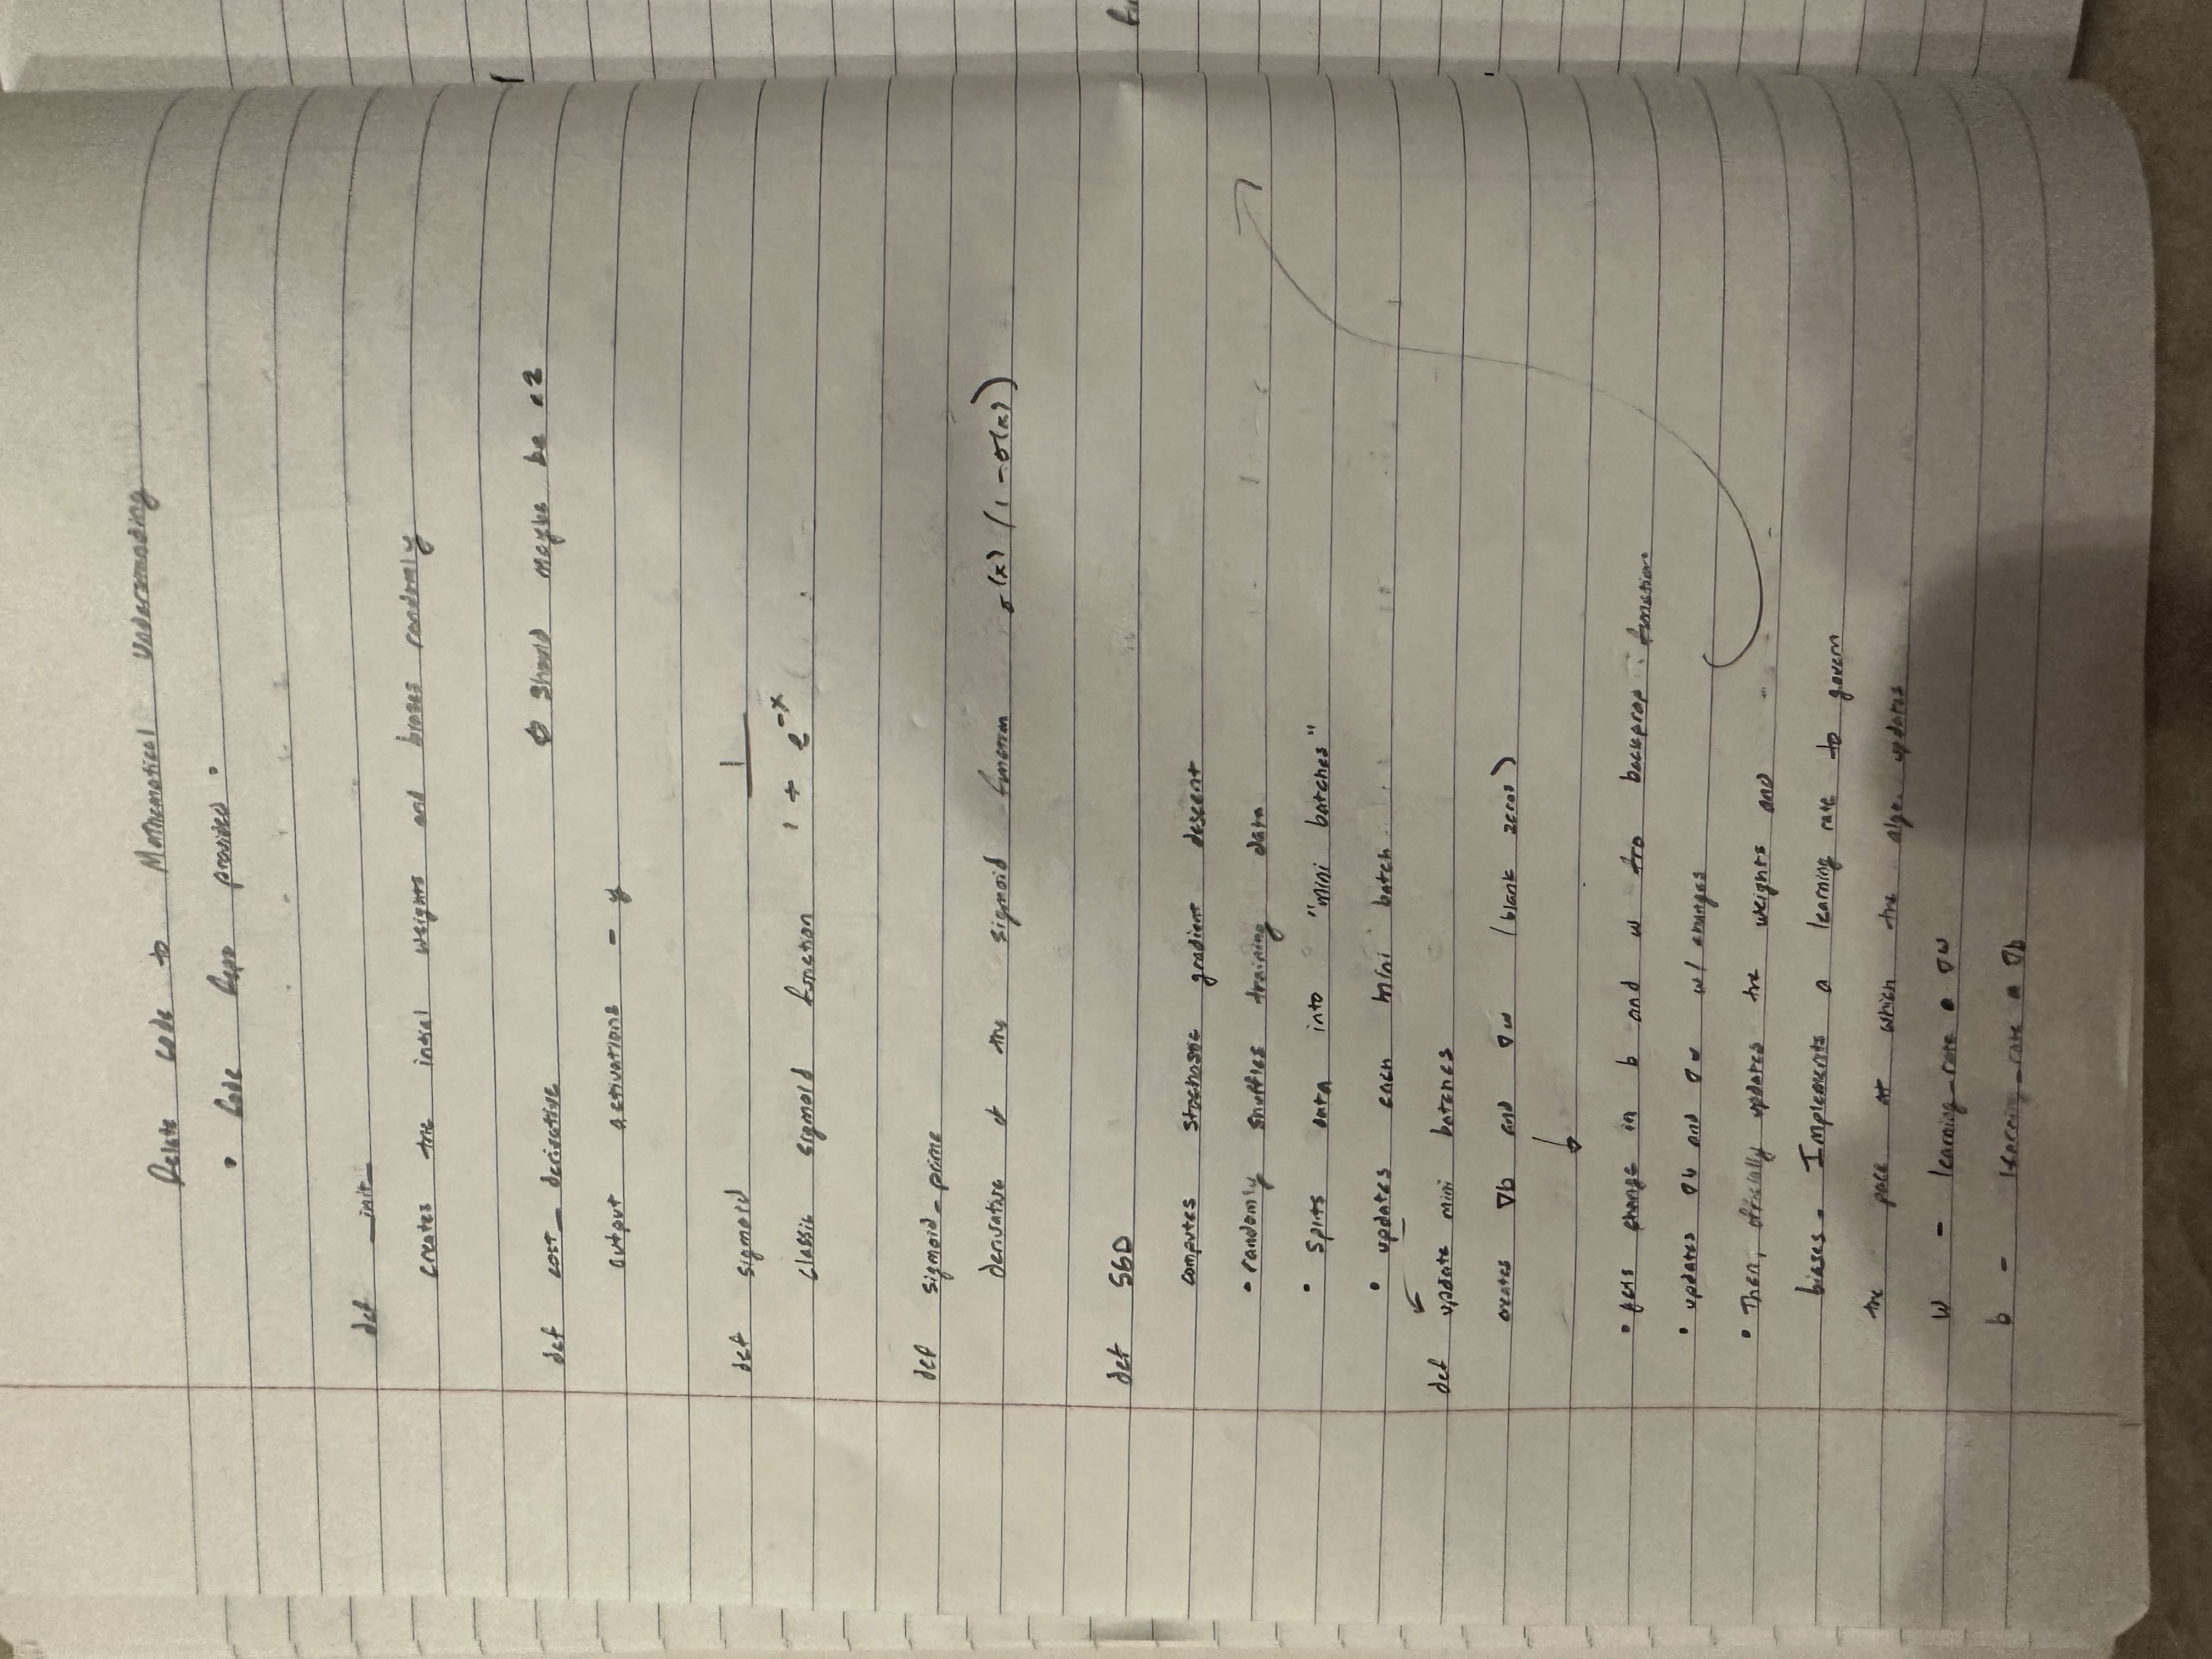 Relate code to Mathematical Understanding
• Code Repo provided •
def __init__
creates the intial weights and biases randomly
def cost_derivative Should maybe be •2
output activations - y
def sigmoid 1
classic sigmoid function 1 + e^-x
def sigmoid_prime
derivative of the sigmoid function σ(x) (1 - σ(x))
def SGD
computes stochastic gradient descent
• randomly shuffles training data
• splits data into "mini batches"
• updates each mini batch
def update mini batches
creates ∇b and ∇w (blank zeros)
• gets change in b and w fro backprop function
• updates ∇b and ∇w w/ changes
• Then, officially updates the weights and
biases. Implements a learning rate to govern
the pace at which the algo. updates
w - learning_rate • ∇w
b - learning_rate • ∇b